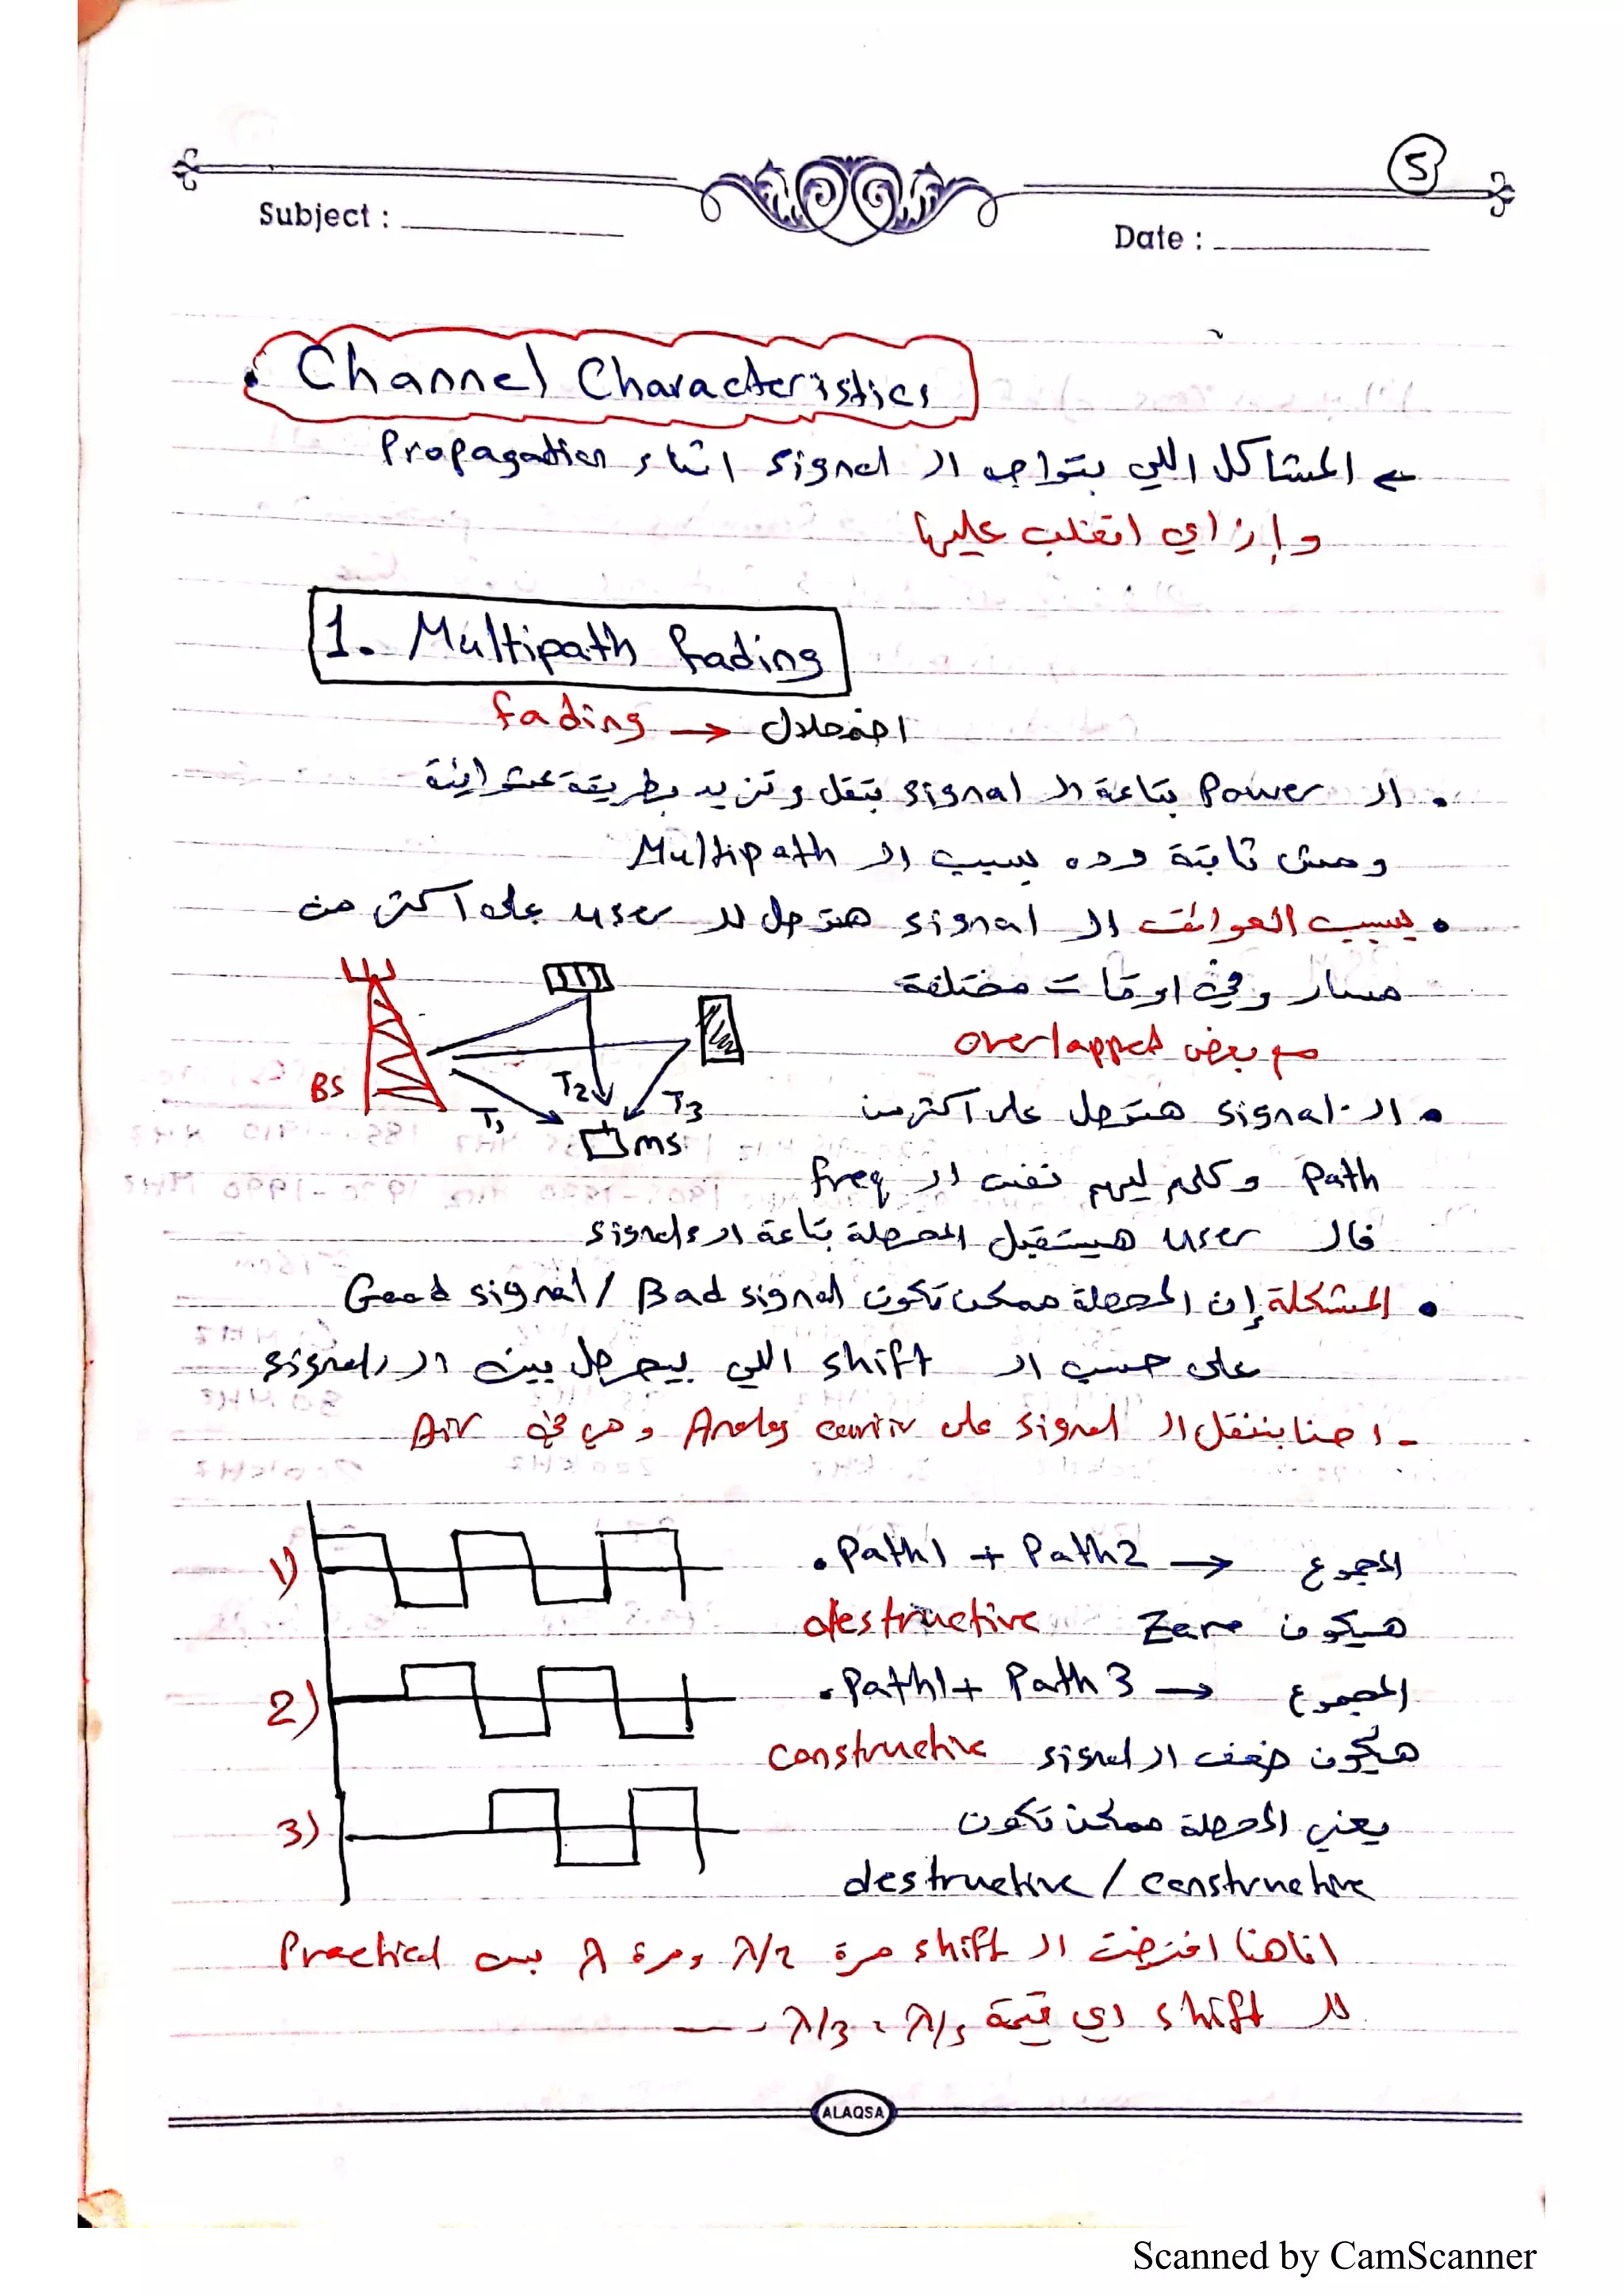 5
Subject :
Date :
Channel Characteristics
← المشاكل اللي بتواجه ال signal اثناء Propagation
وإزاي اتغلب عليها
1. Multipath fading
fading → اضمحلال
• ال Power بتاعة ال signal بتقل وتزيد بطريقة عشوائية
ومش ثابتة وده بسبب ال Multipath
• بسبب العوائق ال signal هتوصل لل user على أكتر من
مسار وفي اوقات مختلفة
مع بعض overlapped
BS
T1
T2
T3
MS
• ال signal هتوصل على أكتر من
Path وكلهم ليهم نفس ال freq
فال user هيستقبل المحصلة بتاعة ال signals
• المشكلة إن المحصلة ممكن تكون Good signal / Bad signal
على حسب ال shift اللي بيحصل بين ال signals
- احنا بننقل ال signal على Analog carrier وهي في Air
1)
• Path1 + Path2 → المجموع
هيكون Zero destructive
2)
• Path1 + Path 3 → المجموع
هيكون ضعف ال signal constructive
3)
يعني المحصلة ممكن تكون
destructive / constructive
انا هنا افترضت ال shift مرة λ/2 ومرة λ بس Practical
لل shift دي قيمة λ/5 ، λ/3 ، ---
ALAQSA
Scanned by CamScanner